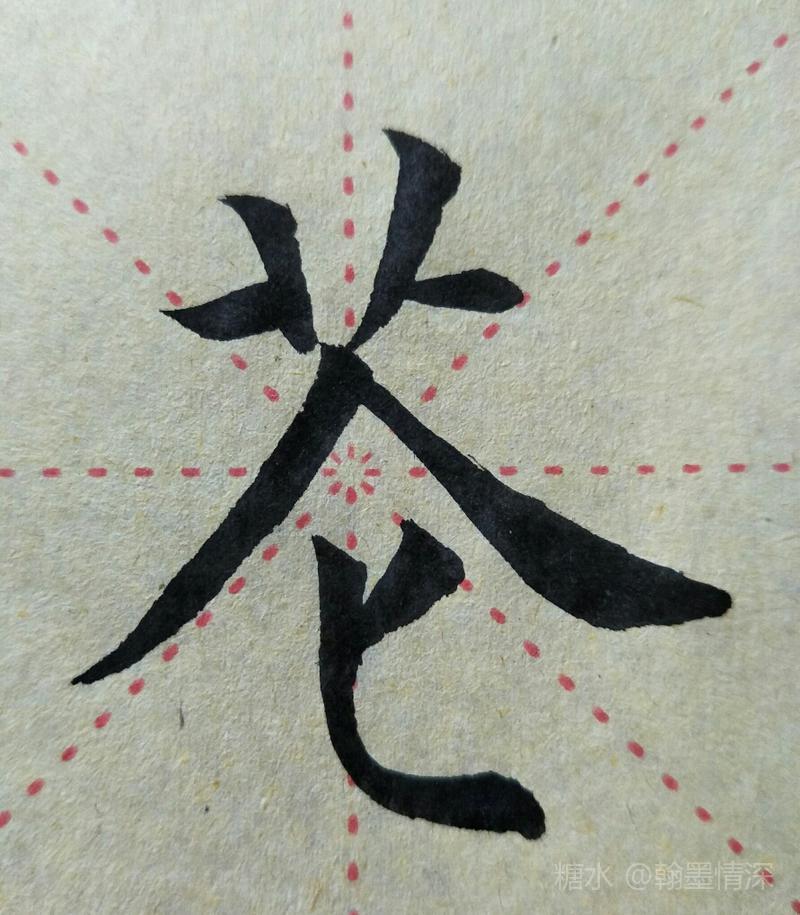 芲
糖水 @翰墨情深